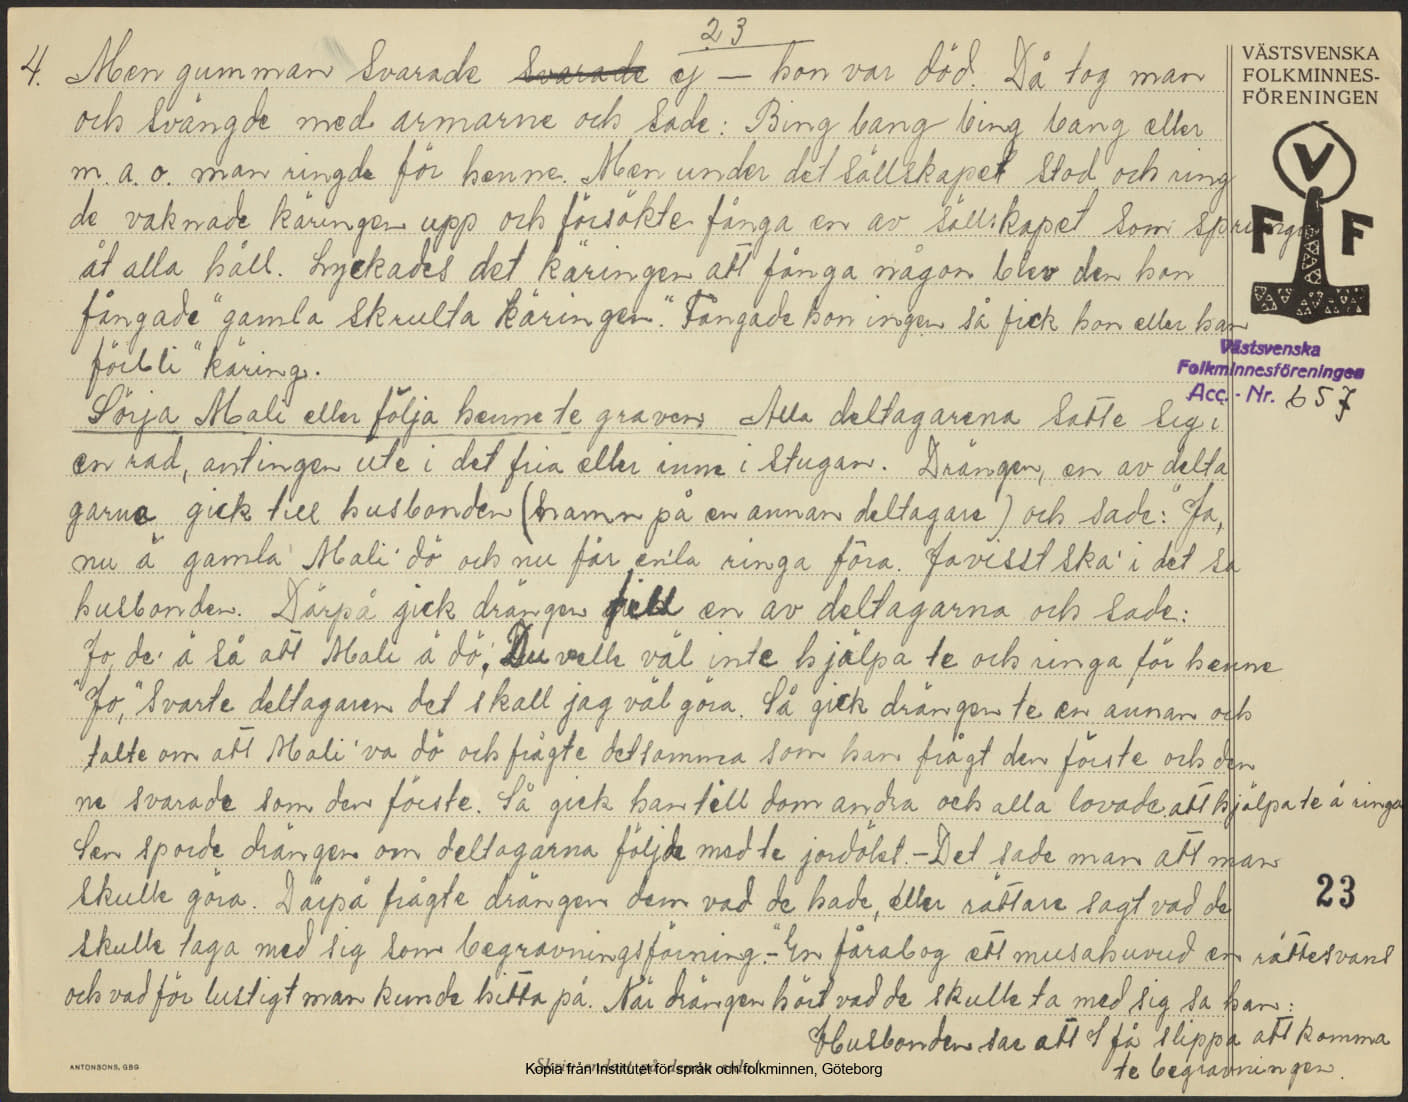 23
4. Men gumman svarade svarade ej — hon var död. Då tog man
och svängde med armarne och sade: Bing bang bing bang eller
m. a. o. man ringde för henne. Men under det sällskapet stod och ring
de vaknade käringen upp och försökte fånga en av sällskapet som sprungo
åt alla håll. Lyckades det käringen att fånga någon blev den hon
fångade "gamla skrulta käringen". Fångade hon ingen så fick hon eller han
förbli "käring.
Sörja Mali eller följa henne te graven Alla deltagarena satte sig i
en rad, antingen ute i det fria eller inne i stugan. Drängen, en av delta
garna gick till husbonden (namn på en annan deltagare) och sade: "Ja,
nu ä' gamla Mali' dö och nu får en'la ringa föra. Javisst ska' i det sa
husbonden. Därpå gick drängen till en av deltagarna och sade:
Jo, de' ä så att Mali ä dö', Du velle väl inte hjälpa te och ringa för henne
"Jo," svarte deltagaren det skall jag väl göra. Så gick drängen te en annan och
talte om att Mali' va dö och frågte detsamma som han frågt den förste och den
ne svarade som den förste. Så gick han till dom andra och alla lovade att hjälpa te å ringa
Sen sporde drängen om deltagarna följde med te jordölet. — Det sade man att man
skulle göra. Därpå frågte drängen dem vad de hade, eller rättare sagt vad de
skulle taga med sig som begravningsförning. — "En fårabog ett musahuvud en råttesvans
och vad för lustigt man kunde hitta på. När drängen hört vad de skulle ta med sig sa han:
Husbonden sae att I få slippa att komma
te begravningen.
VÄSTSVENSKA
FOLKMINNES-
FÖRENINGEN
V
F F
Västsvenska
Folkminnesföreningen
Acc. - Nr. 657
23
ANTONSONS, GBG
Kopia från Institutet för språk och folkminnen, Göteborg